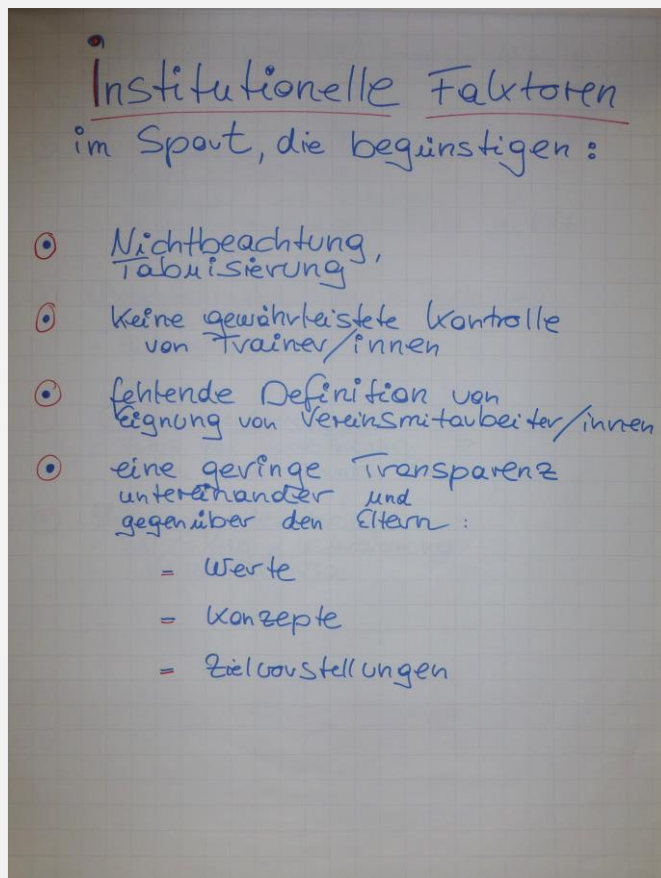 Institutionelle Faktoren
im Sport, die begünstigen:
Nichtbeachtung,
Tabuisierung
Keine gewährleistete Kontrolle
von Trainer/innen
fehlende Definition von
Eignung von Vereinsmitarbeiter/innen
eine geringe Transparenz
untereinander und
gegenüber den Eltern:
- Werte
- Konzepte
- Zielvorstellungen